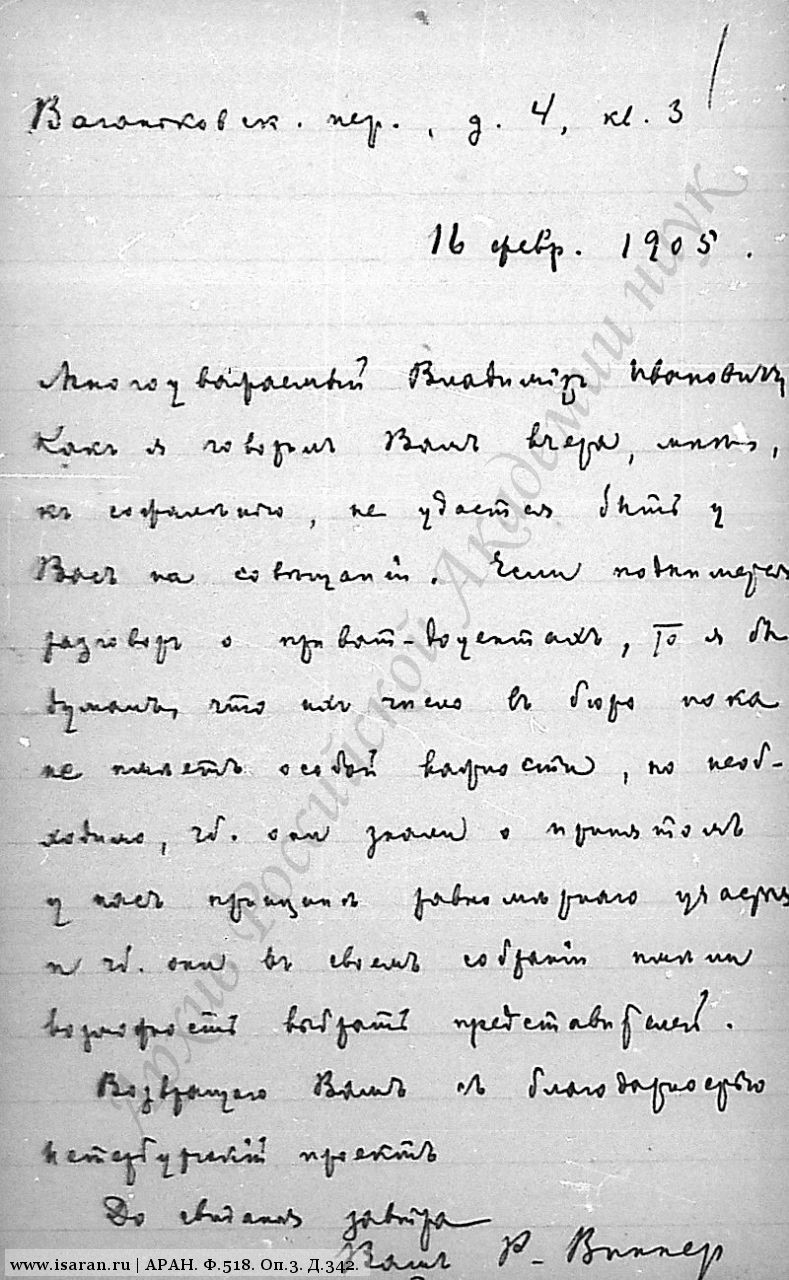 Ваганьковск. пер., д. 4, кв. 3
16 февр. 1905.
Многоуважаемый Владимiръ Ивановичъ,
Какъ я говорилъ Вамъ вчера, мнѣ,
къ сожалѣнiю, не удастся быть у
Васъ на совѣщанiи. Если поднимется
разговоръ о приват-доцентахъ, то я бы
думалъ, что ихъ число въ бюро пока
не имѣетъ особой важности, но необ-
ходимо, чб. они знали о принятомъ
у насъ принципѣ равномѣрнаго участiя
и чб. они въ своемъ собранiи имѣли
возможность выбрать представителей.
Возвращаю Вамъ съ благодарностью
петербургскiй проектъ
До свиданья завтра
Вашъ Р. Виппер
Архив Российской Академии наук
www.isaran.ru | АРАН. Ф.518. Оп.3. Д.342.